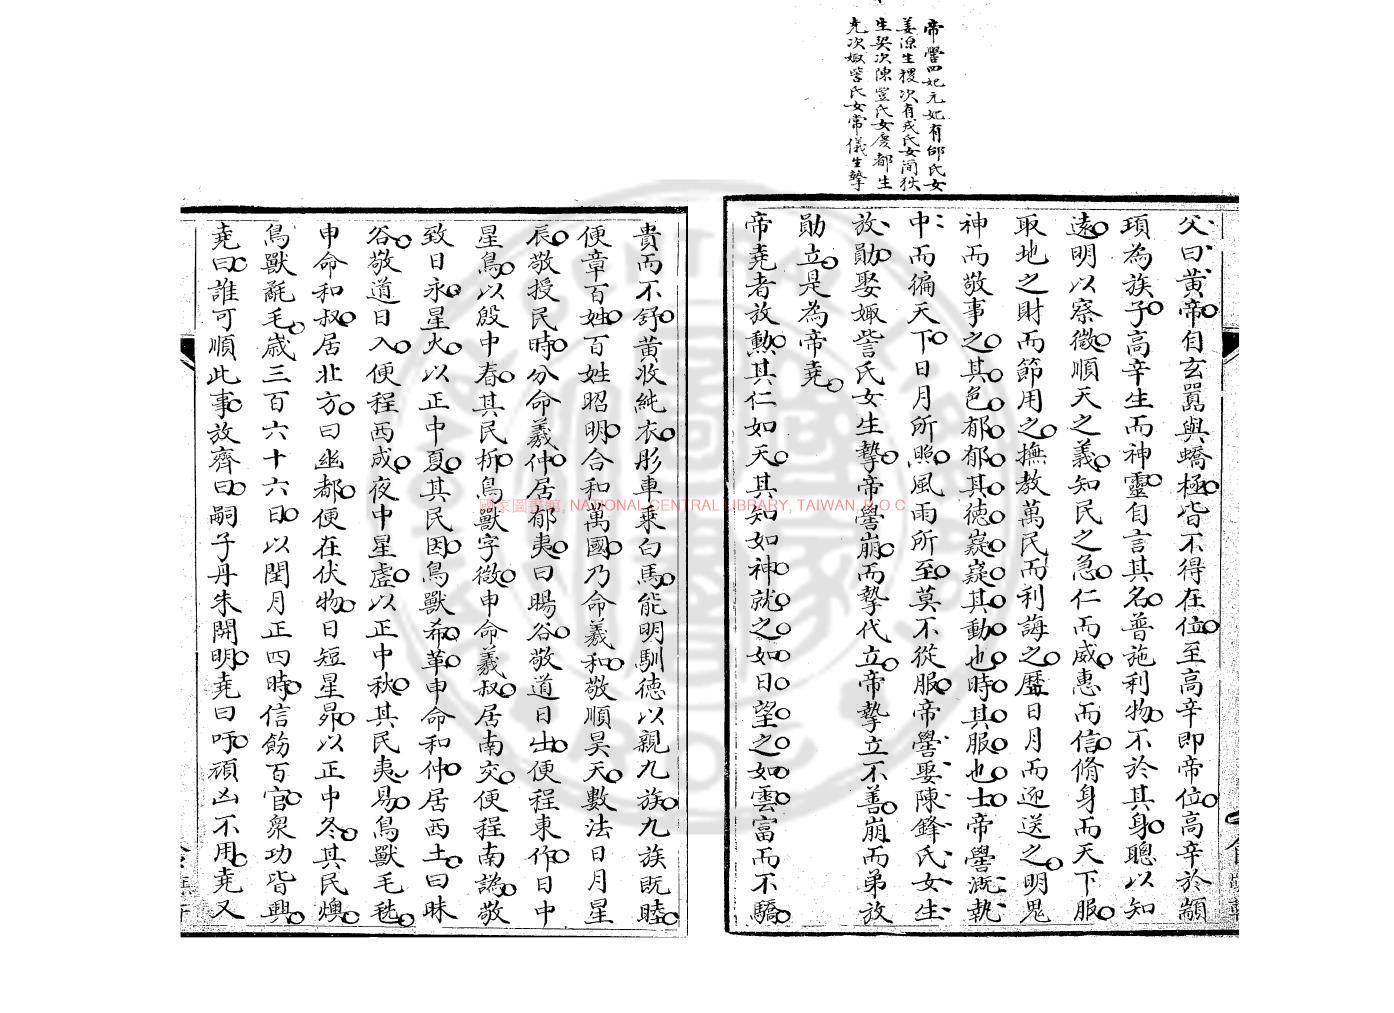 帝嚳四妃元妃有邰氏女
姜源生稷次有戎氏女簡狄
生契次陳豐氏女慶都生
堯次娵訾氏女常儀生摯
父曰黃帝自玄囂與蟜極皆不得在位至高辛即帝位高辛於顓
頊為族子高辛生而神靈自言其名普施利物不於其身聰以知
遠明以察微順天之義知民之急仁而威惠而信脩身而天下服
取地之財而節用之撫教萬民而利誨之曆日月而迎送之明鬼
神而敬事之其色郁郁其德嶷嶷其動也時其服也士帝嚳溉執
中而徧天下日月所照風雨所至莫不從服帝嚳娶陳鋒氏女生
放勛娶娵訾氏女生摯帝嚳崩而摯代立帝摯立不善崩而弟放
勛立是為帝堯
帝堯者放勲其仁如天其知如神就之如日望之如雲富而不驕
貴而不舒黃收純衣彤車乗白馬能明馴德以親九族九族既睦
便章百姓百姓昭明合和萬國乃命羲和敬順昊天數法日月星
辰敬授民時分命羲仲居郁夷曰暘谷敬道日出便程東作日中
星鳥以殷中春其民析鳥獸字微申命羲叔居南交便程南譌敬
致日永星火以正中夏其民因鳥獸希革申命和仲居西土曰昧
谷敬道日入便程西成夜中星虛以正中秋其民夷易鳥獸毛毨
申命和叔居北方曰幽都便在伏物日短星昴以正中冬其民燠
鳥獸氄毛歲三百六十六日以閏月正四時信飭百官衆功皆興
堯曰誰可順此事放齊曰嗣子丹朱開明堯曰吁頑凶不用堯又
國家圖書館, NATIONAL CENTRAL LIBRARY, TAIWAN, R.O.C.